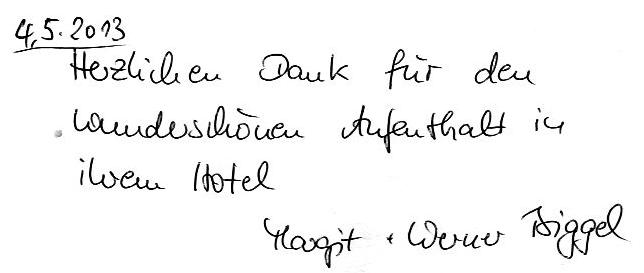 4.5.2013
Herzlichen Dank für den
wunderschönen Aufenthalt in
ihrem Hotel
Margit + Werner Biggel